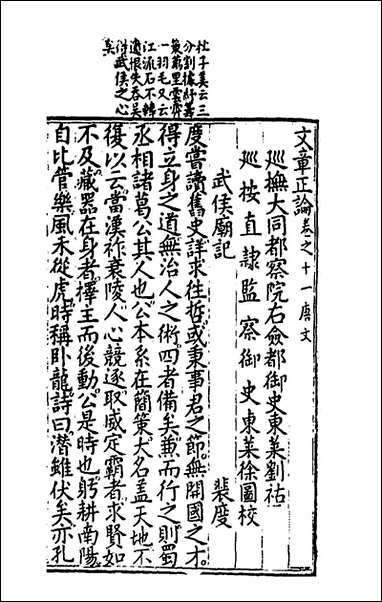 杜子美云三
分割據紆籌
策萬里雲霄
一羽毛又云
江流石不轉
遺恨失吞吳
得武侯之心
矣
文章正論卷之十一唐文
廵撫大同都察院右僉都御史東萊劉祜
廵按直隷監察御史東萊徐圖校
武侯廟記 裴度
度嘗讀舊史詳求徃哲或秉事君之節無開國之才
得立身之道無治人之術四者備矣兼而行之則蜀
丞相諸葛公其人也公本系在簡策大名盖天地不
復以云當漢祚衰陵人心競逐取威定霸者求賢如
不及藏器在身者擇主而後動公是時也躬耕南陽
自比管樂風未從虎時稱卧龍詩曰潛雖伏矣亦孔